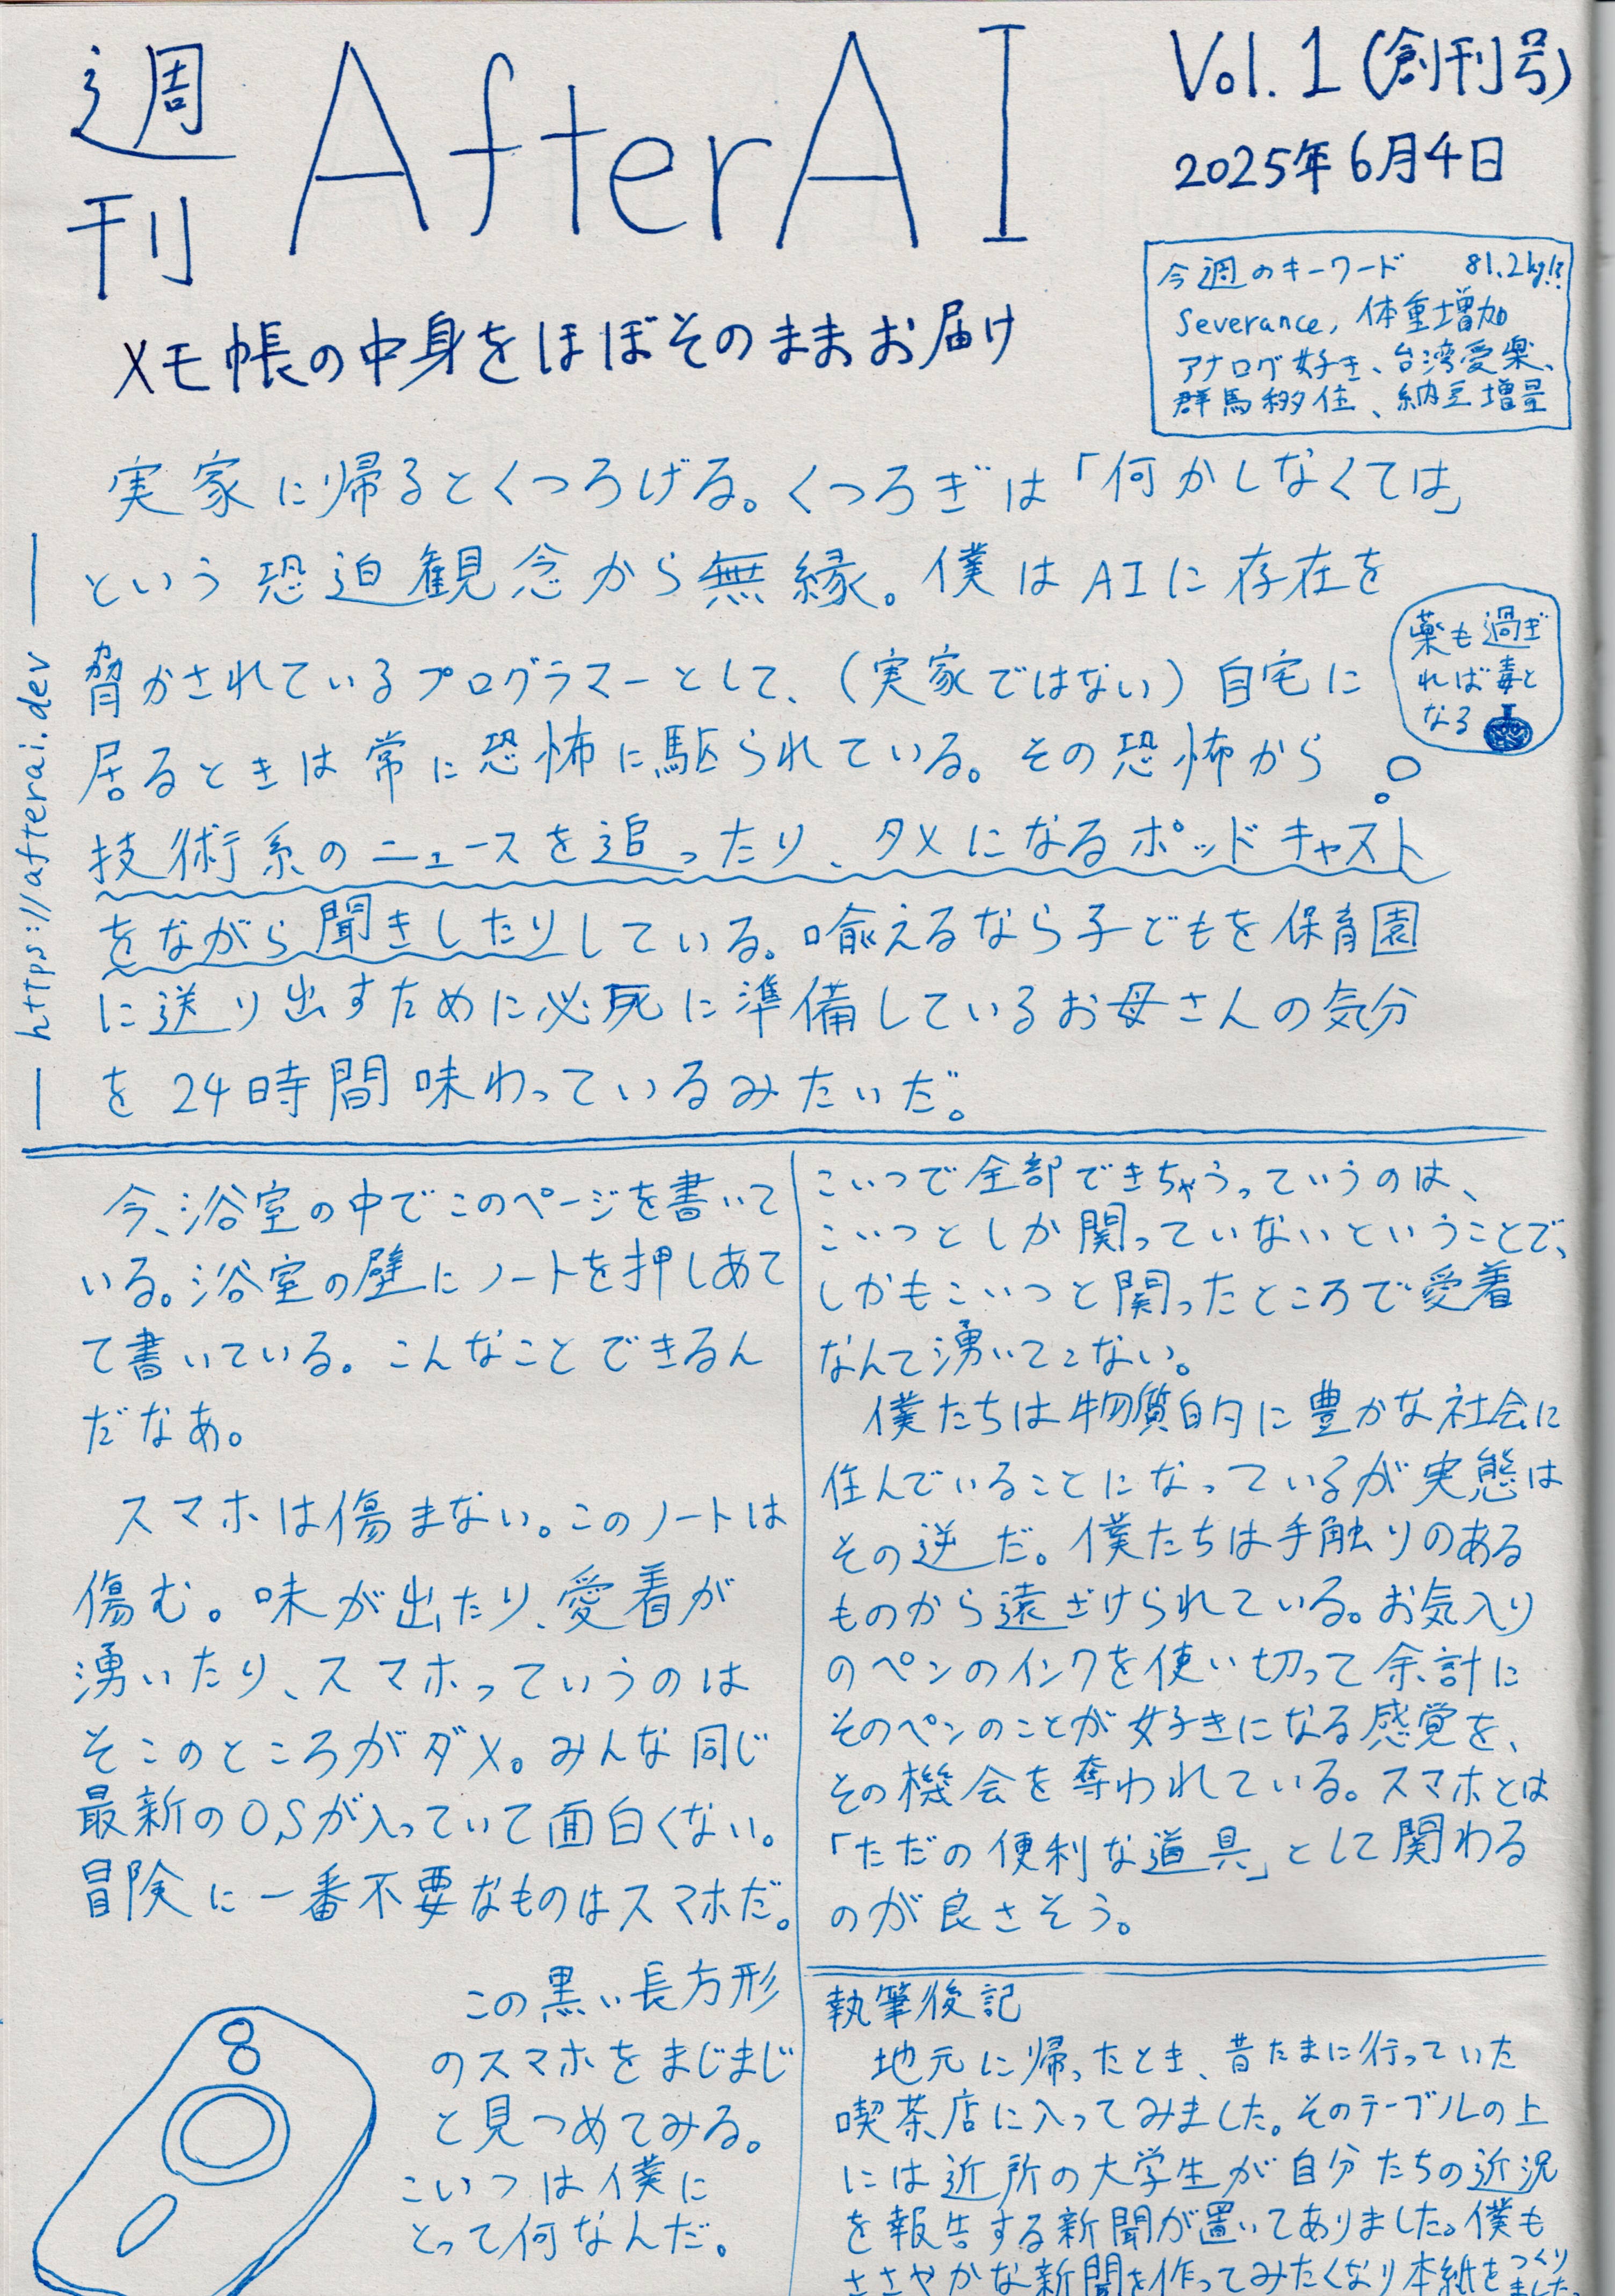 週刊 AfterAI
Vol. 1 (創刊号)
2025年6月4日
メモ帳の中身をほぼそのままお届け
今週のキーワード 81.2kg!?
Severance, 体重増加
アナログ好き、台湾愛楽、
群馬移住、納豆増量
https://afterai.dev
実家に帰るとくつろげる。くつろぎは「何かしなくては」
という恐迫観念から無縁。僕はAIに存在を
脅かされているプログラマーとして、(実家ではない)自宅に
居るときは常に恐怖に駆られている。その恐怖から
技術系のニュースを追ったり、タメになるポッドキャスト
をながら聞きしたりしている。喩えるなら子どもを保育園
に送り出すために必死に準備しているお母さんの気分
を24時間味わっているみたいだ。
薬も過ぎ
れば毒と
なる
今、浴室の中でこのページを書いて
いる。浴室の壁にノートを押しあて
て書いている。こんなことできるん
だなあ。
スマホは傷まない。このノートは
傷む。味が出たり、愛着が
湧いたり、スマホっていうのは
そこのところがダメ。みんな同じ
最新のOSが入っていて面白くない。
冒険に一番不要なものはスマホだ。
この黒い長方形
のスマホをまじまじ
と見つめてみる。
こいつは僕に
とって何なんだ。
こいつで全部できちゃうっていうのは、
こいつとしか関っていないということで、
しかもこいつと関ったところで愛着
なんて湧いてこない。
僕たちは物質的に豊かな社会に
住んでいることになっているが実態は
その逆だ。僕たちは手触りのある
ものから遠ざけられている。お気入り
のペンのインクを使い切って余計に
そのペンのことが好きになる感覚を、
その機会を奪われている。スマホとは
「ただの便利な道具」として関わる
のが良さそう。
執筆後記
地元に帰ったとき、昔たまに行っていた
喫茶店に入ってみました。そのテーブルの上
には近所の大学生が自分たちの近況
を報告する新聞が置いてありました。僕も
ささやかな新聞を作ってみたくなり本紙をつくり
ました。